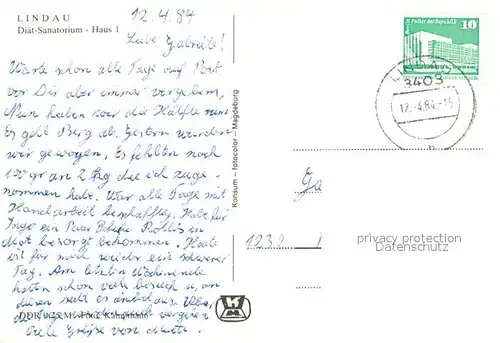 LINDAU
Diät-Sanatorium - Haus 1
12.4.84
Liebe Gabriele!
Warte schon alle Tage auf Post
von Dir aber immer vergebens,
Nun haben wir die Hälfte rum
Es geht Berg ab. Gestern wurden
wir gewogen, Es fehlten noch
100 gr an 2 kg die ich zuge-
nommen habe. War alle Tage mit
Handarbeit beschäftig. Habe für
Ingo ein Paar
bekommen. Heute
ist für mich wieder ein schwerer
Tag. Am letzten Wochenende
hatten schon viele besuch u. an
diesen sieht es
DDR 0,25 M Foto: Kampmann
Viele Grüße von
Konsum - fotocolor - Magdeburg
10
Palast der Republik
LINDAU
3403
12.-4.84.-15
b
Ga
1232
privacy protection
Datenschutz